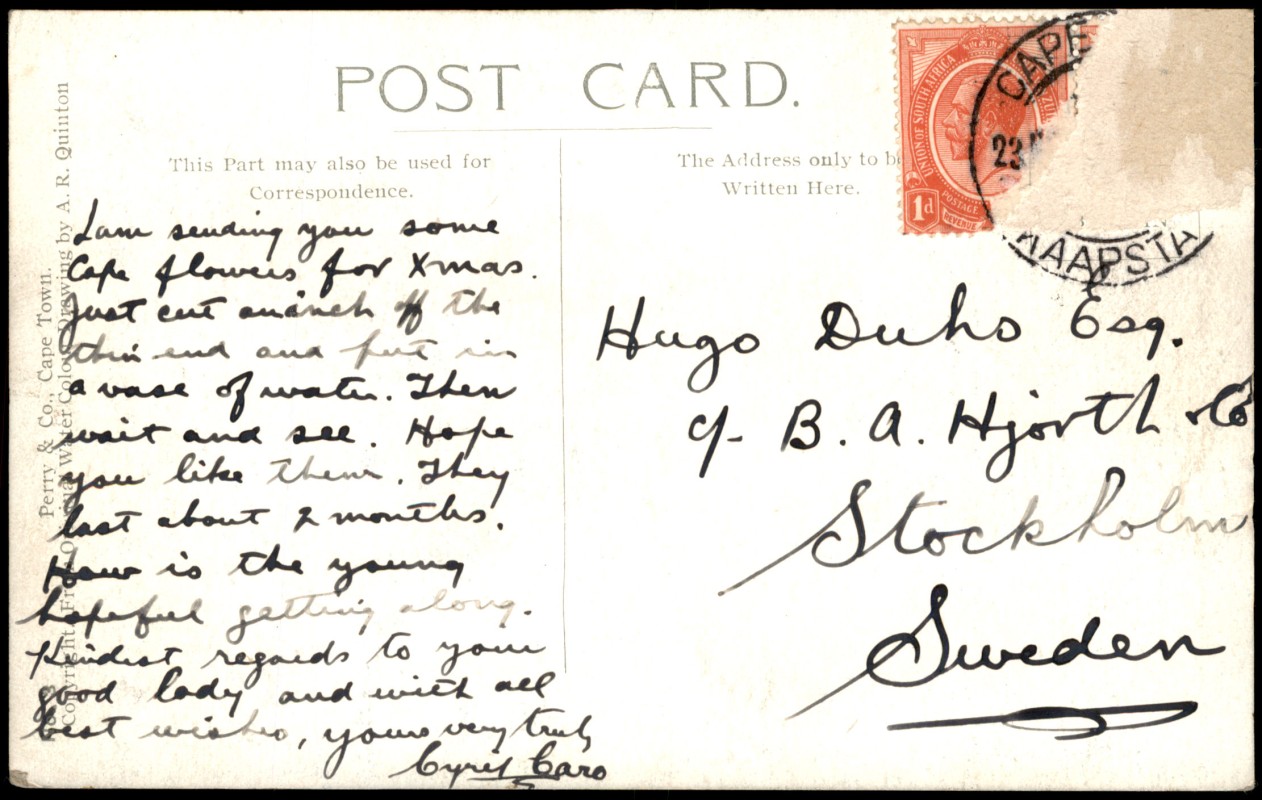 POST CARD.
This Part may also be used for
Correspondence.
The Address only to be
Written Here.
UNION OF SOUTH AFRICA
POSTAGE
REVENUE
1d
CAPE
23
KAAPSTA
I am sending you some
Cape flowers for Xmas.
Just cut an inch off the
thin end and put in
a vase of water. Then
wait and see. Hope
you like them. They
last about 2 months.
How is the young
hopeful getting along.
Kindest regards to your
good lady and with all
best wishes, yours very truly
Cyril Caro
Hugo Duhs Esq.
c/- B. A. Hjorth & Co
Stockholm
Sweden
Perry & Co., Cape Town.
Copyright. From Original Water Colour Drawing by A. R. Quinton